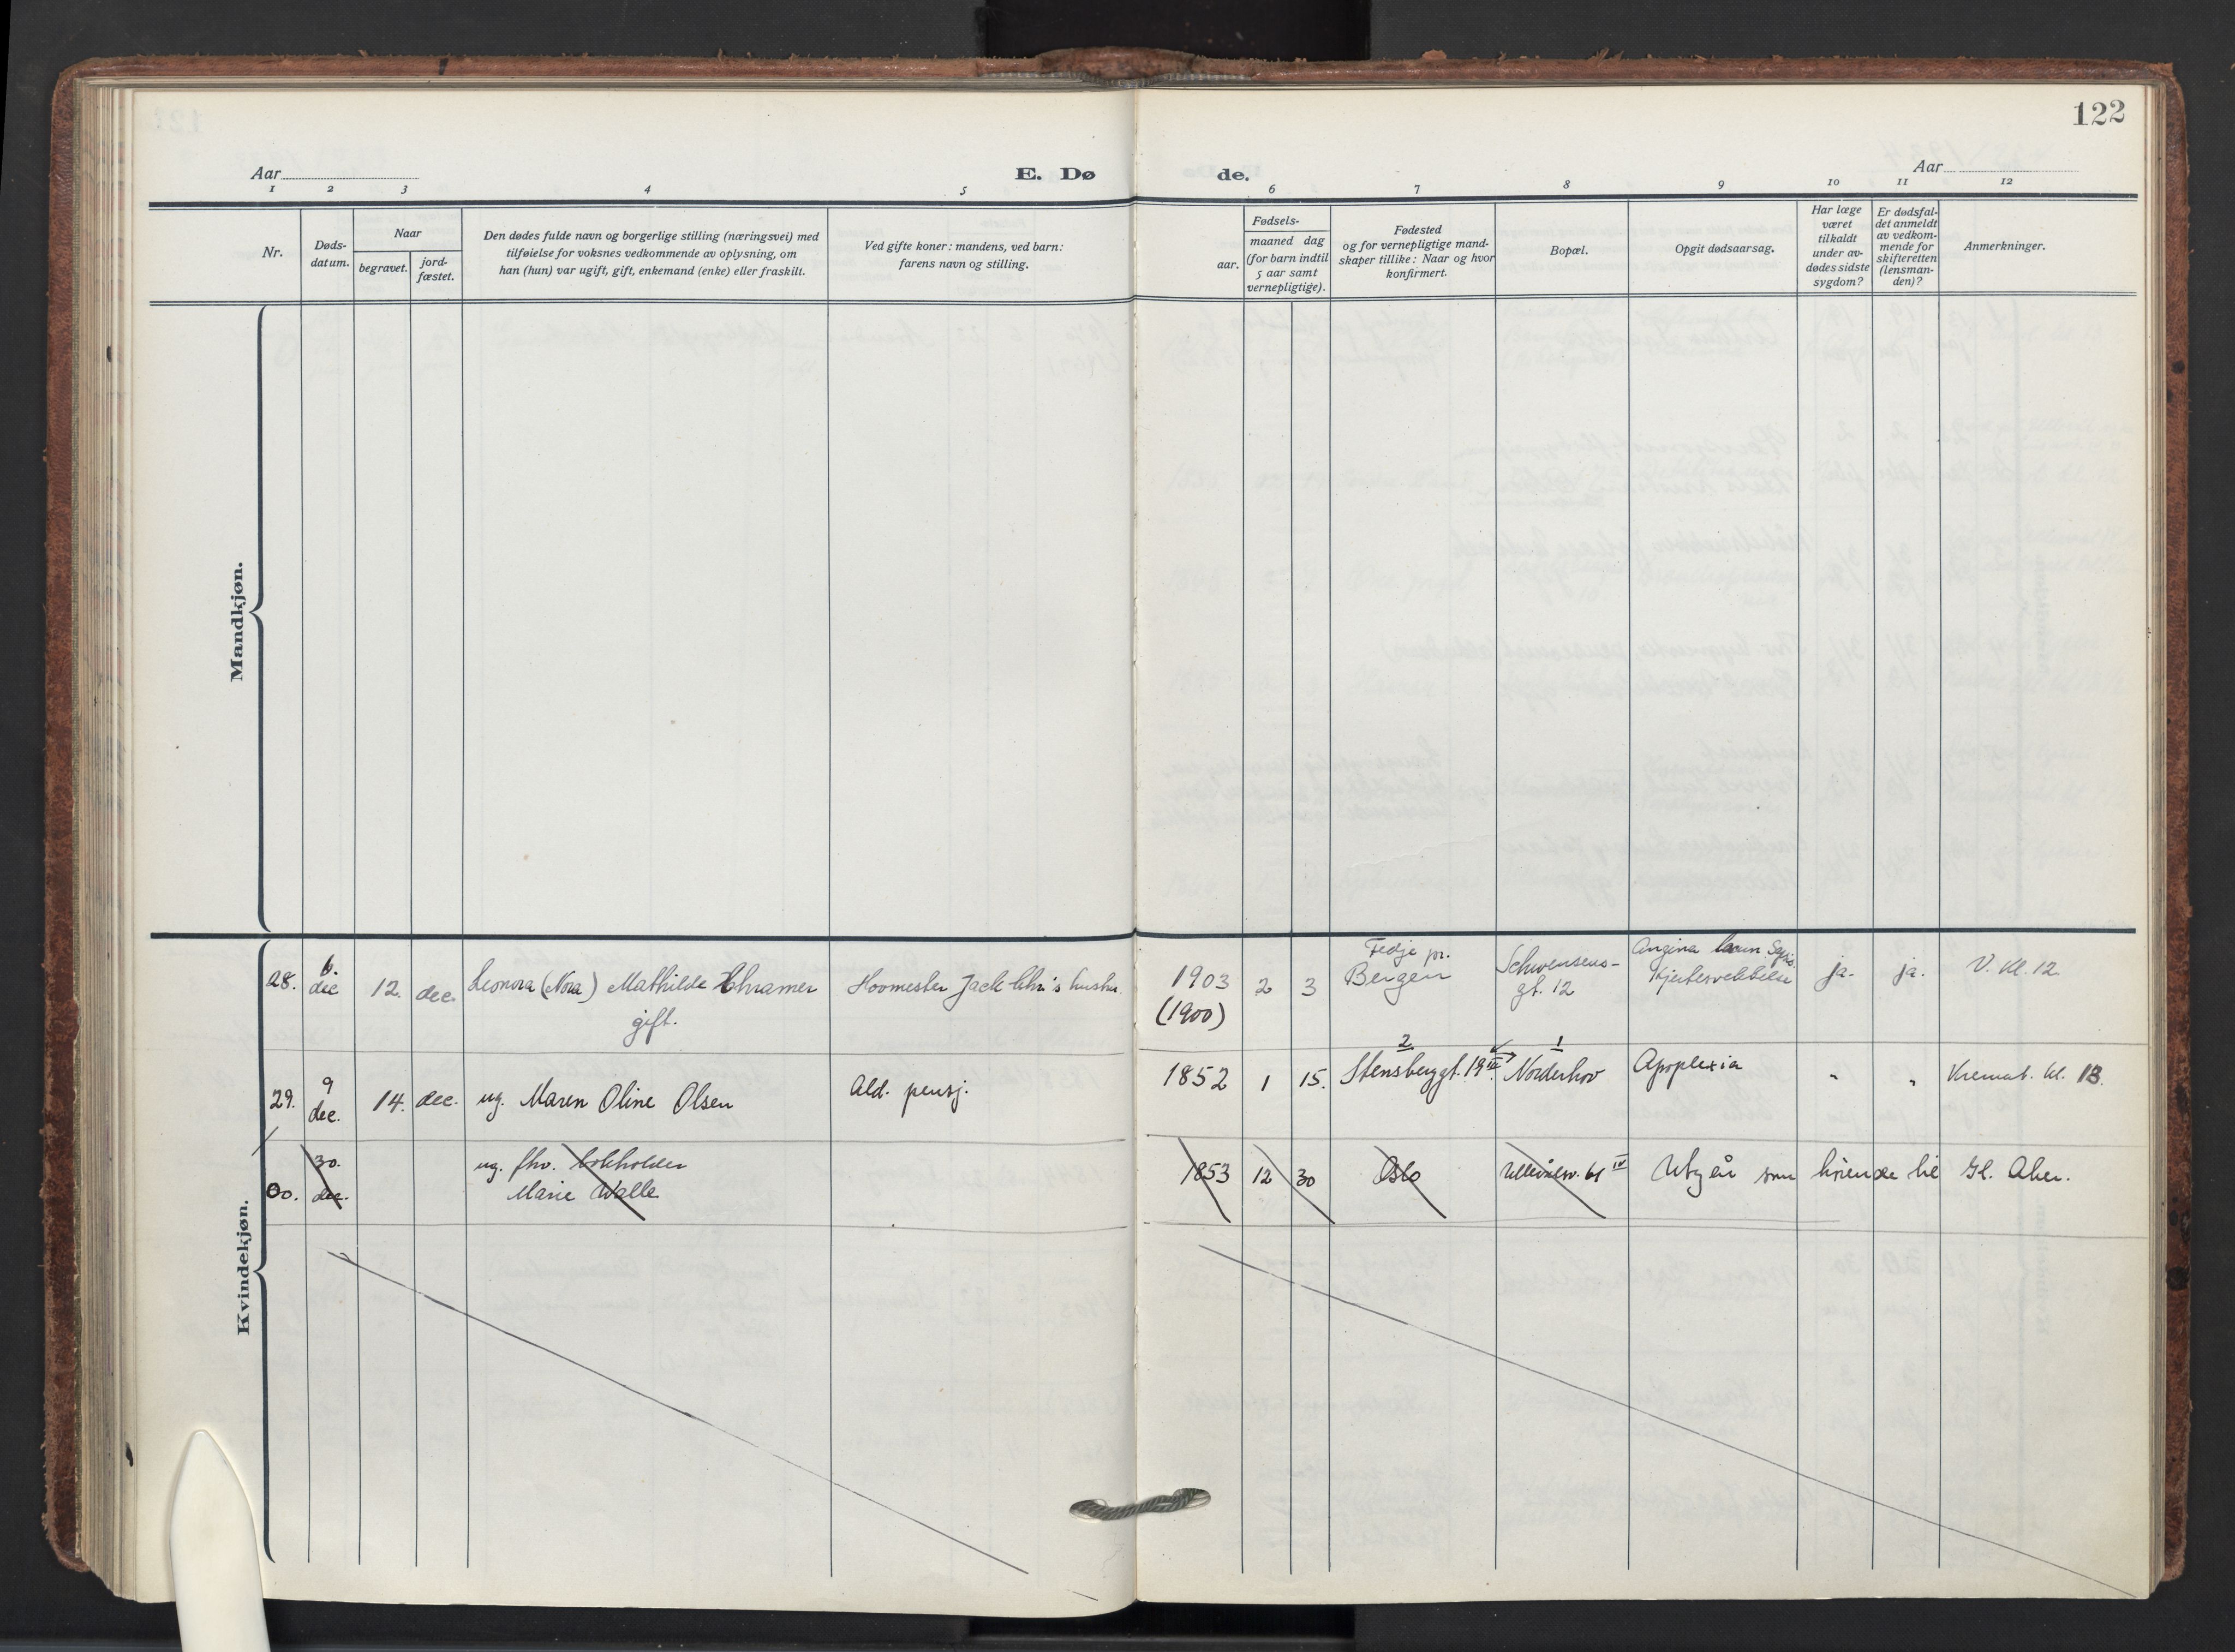 122
Aar
E. Dø
de.
Aar
1 2 3 4 5 6 7 8 9 10 11 12
Nr.
Døds-
datum.
Naar
begravet.
jord-
fæstet.
Den dødes fulde navn og borgerlige stilling (næringsvei) med
tilføielse for voksnes vedkommende av oplysning, om
han (hun) var ugift, gift, enkemand (enke) eller fraskilt.
Ved gifte koner: mandens, ved barn:
farens navn og stilling.
aar.
Fødsels-
maaned dag
(for barn indtil
5 aar samt
vernepligtige).
Fødested
og for vernepligtige mand-
skaper tillike: Naar og hvor
konfirmert.
Bopæl.
Opgit dødsaarsag.
Har læge
været
tilkaldt
under av-
dødes sidste
sygdom?
Er dødsfal-
det anmeldt
av vedkom-
mende for
skifteretten
(lensman-
den)?
Anmerkninger.
Mandkjøn.
Kvindekjøn.
28.
6.
dec
12. dec.
Leonora (Nora) Mathilde Chramer
gift.
Hovmester Jack Chr's hustru.
1903
(1900)
2 3
Fedje pr.
Bergen
Schwensens-
gt. 12
Angina
ja. ja.
V. kl. 12.
29.
9
dec.
14. dec.
ug. Maren Oline Olsen
Ald. pensj.
1852 1 15.
2
Stensberggt. 19 III
1
Norderhov
Apoplexia
" "
Kremat. kl. 13.
00.
30.
dec.
ug. fhv. bokholder
Marie Walle
1853 12 30
Oslo
Ullevålsv. 61 IV
Utgår som hörende til Gl. Aker.